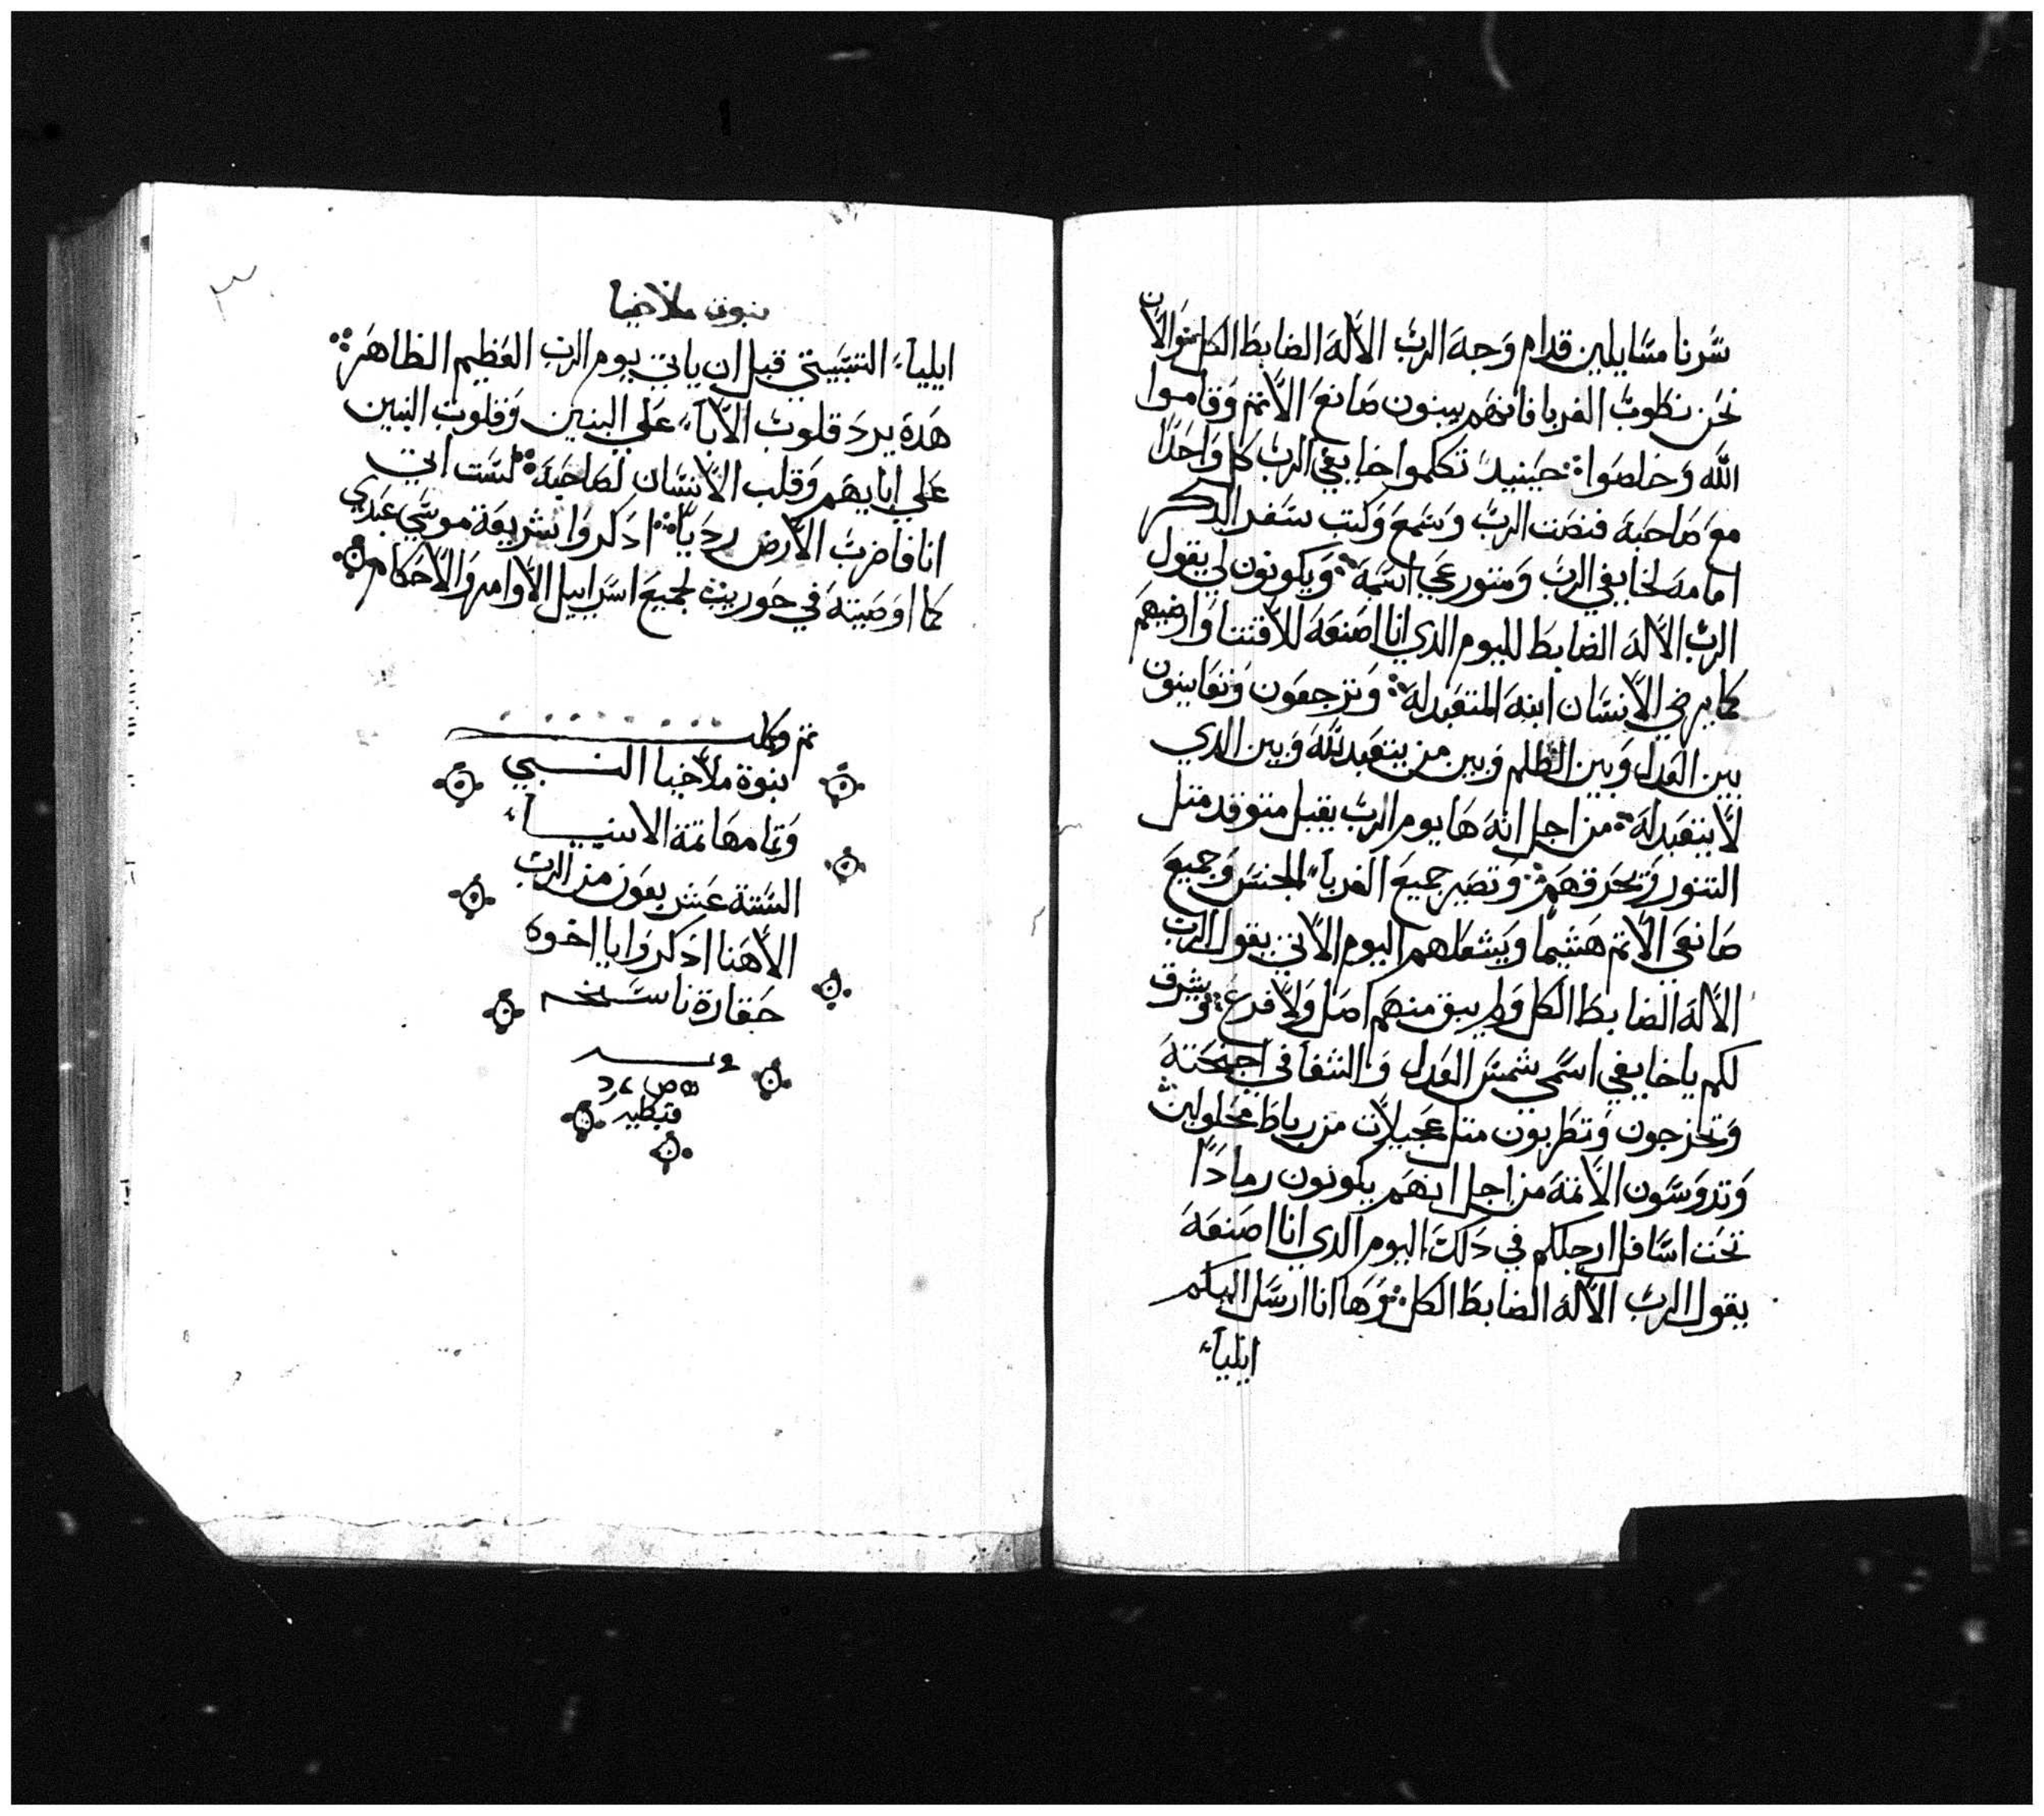 سرنا مسايلين قدام وجه الرب الاله الضابط الكل والان
نحن نطوب الغربا فانهم يبنون صانعى الاتم وقاموا
الله وخلصوا حينيد تكلموا خايفي الرب كل واحدا
مع صاحبه فنصت الرب وسمع وكتب سفر الدكر
امامه لخايفي الرب ومتورعي اسمه ويكونون لي يقول
الرب الاله الضابط لليوم الدي انا اصنعه للاقتنا وارضيهم
كما يرضي الانسان ابنه المتعبد له وترجعون وتعاينون
بين العدل وبين الظلم وبين من يتعبد لله وبين الدي
لا يتعبد له من اجل انه ها يوم الرب يقبل متوقد متل
التنور ويحرقهم وتصير جميع الغربآء الجنس وجميع
صانعي الاتم هشيما ويشعلهم اليوم الاتي يقول الرب
الاله الضابط الكل ولم يبق منهم اصل ولا فرع ويشرق
لكم يا خايفي اسمي شمس العدل والشفا في اجنحته
وتخرجون وتطربون متل عجيلات من رباط محلولين
وتدوسون الاتمة من اجل انهم يكونون رمادا
تحت اسافل ارجلكم في دلك اليوم الدي انا اصنعه
يقول الرب الاله الضابط الكل وها انا ارسل اليكم
ايليآء
٣
نبوة ملاخيا
ايليآء التسبيتي قبل ان ياتي يوم الرب العظيم الظاهر
هده يرد قلوب الابآء علي البنين وقلوب البنين
علي ابايهم وقلب الانسان لصاحبه لست اتي
انا فاضرب الارض رديا ادكروا شريعة موسي عبدي
كما اوصيته في حوريب لجميع اسراييل الاوامر والاحكام
تم وكملت
نبوة ملاخيا النبي
وتمامها تمة الانبيآء
الستة عشر بعون من الرب
الاهنا ادكروا يا اخوه
حقارة ناسخه
قبطيه